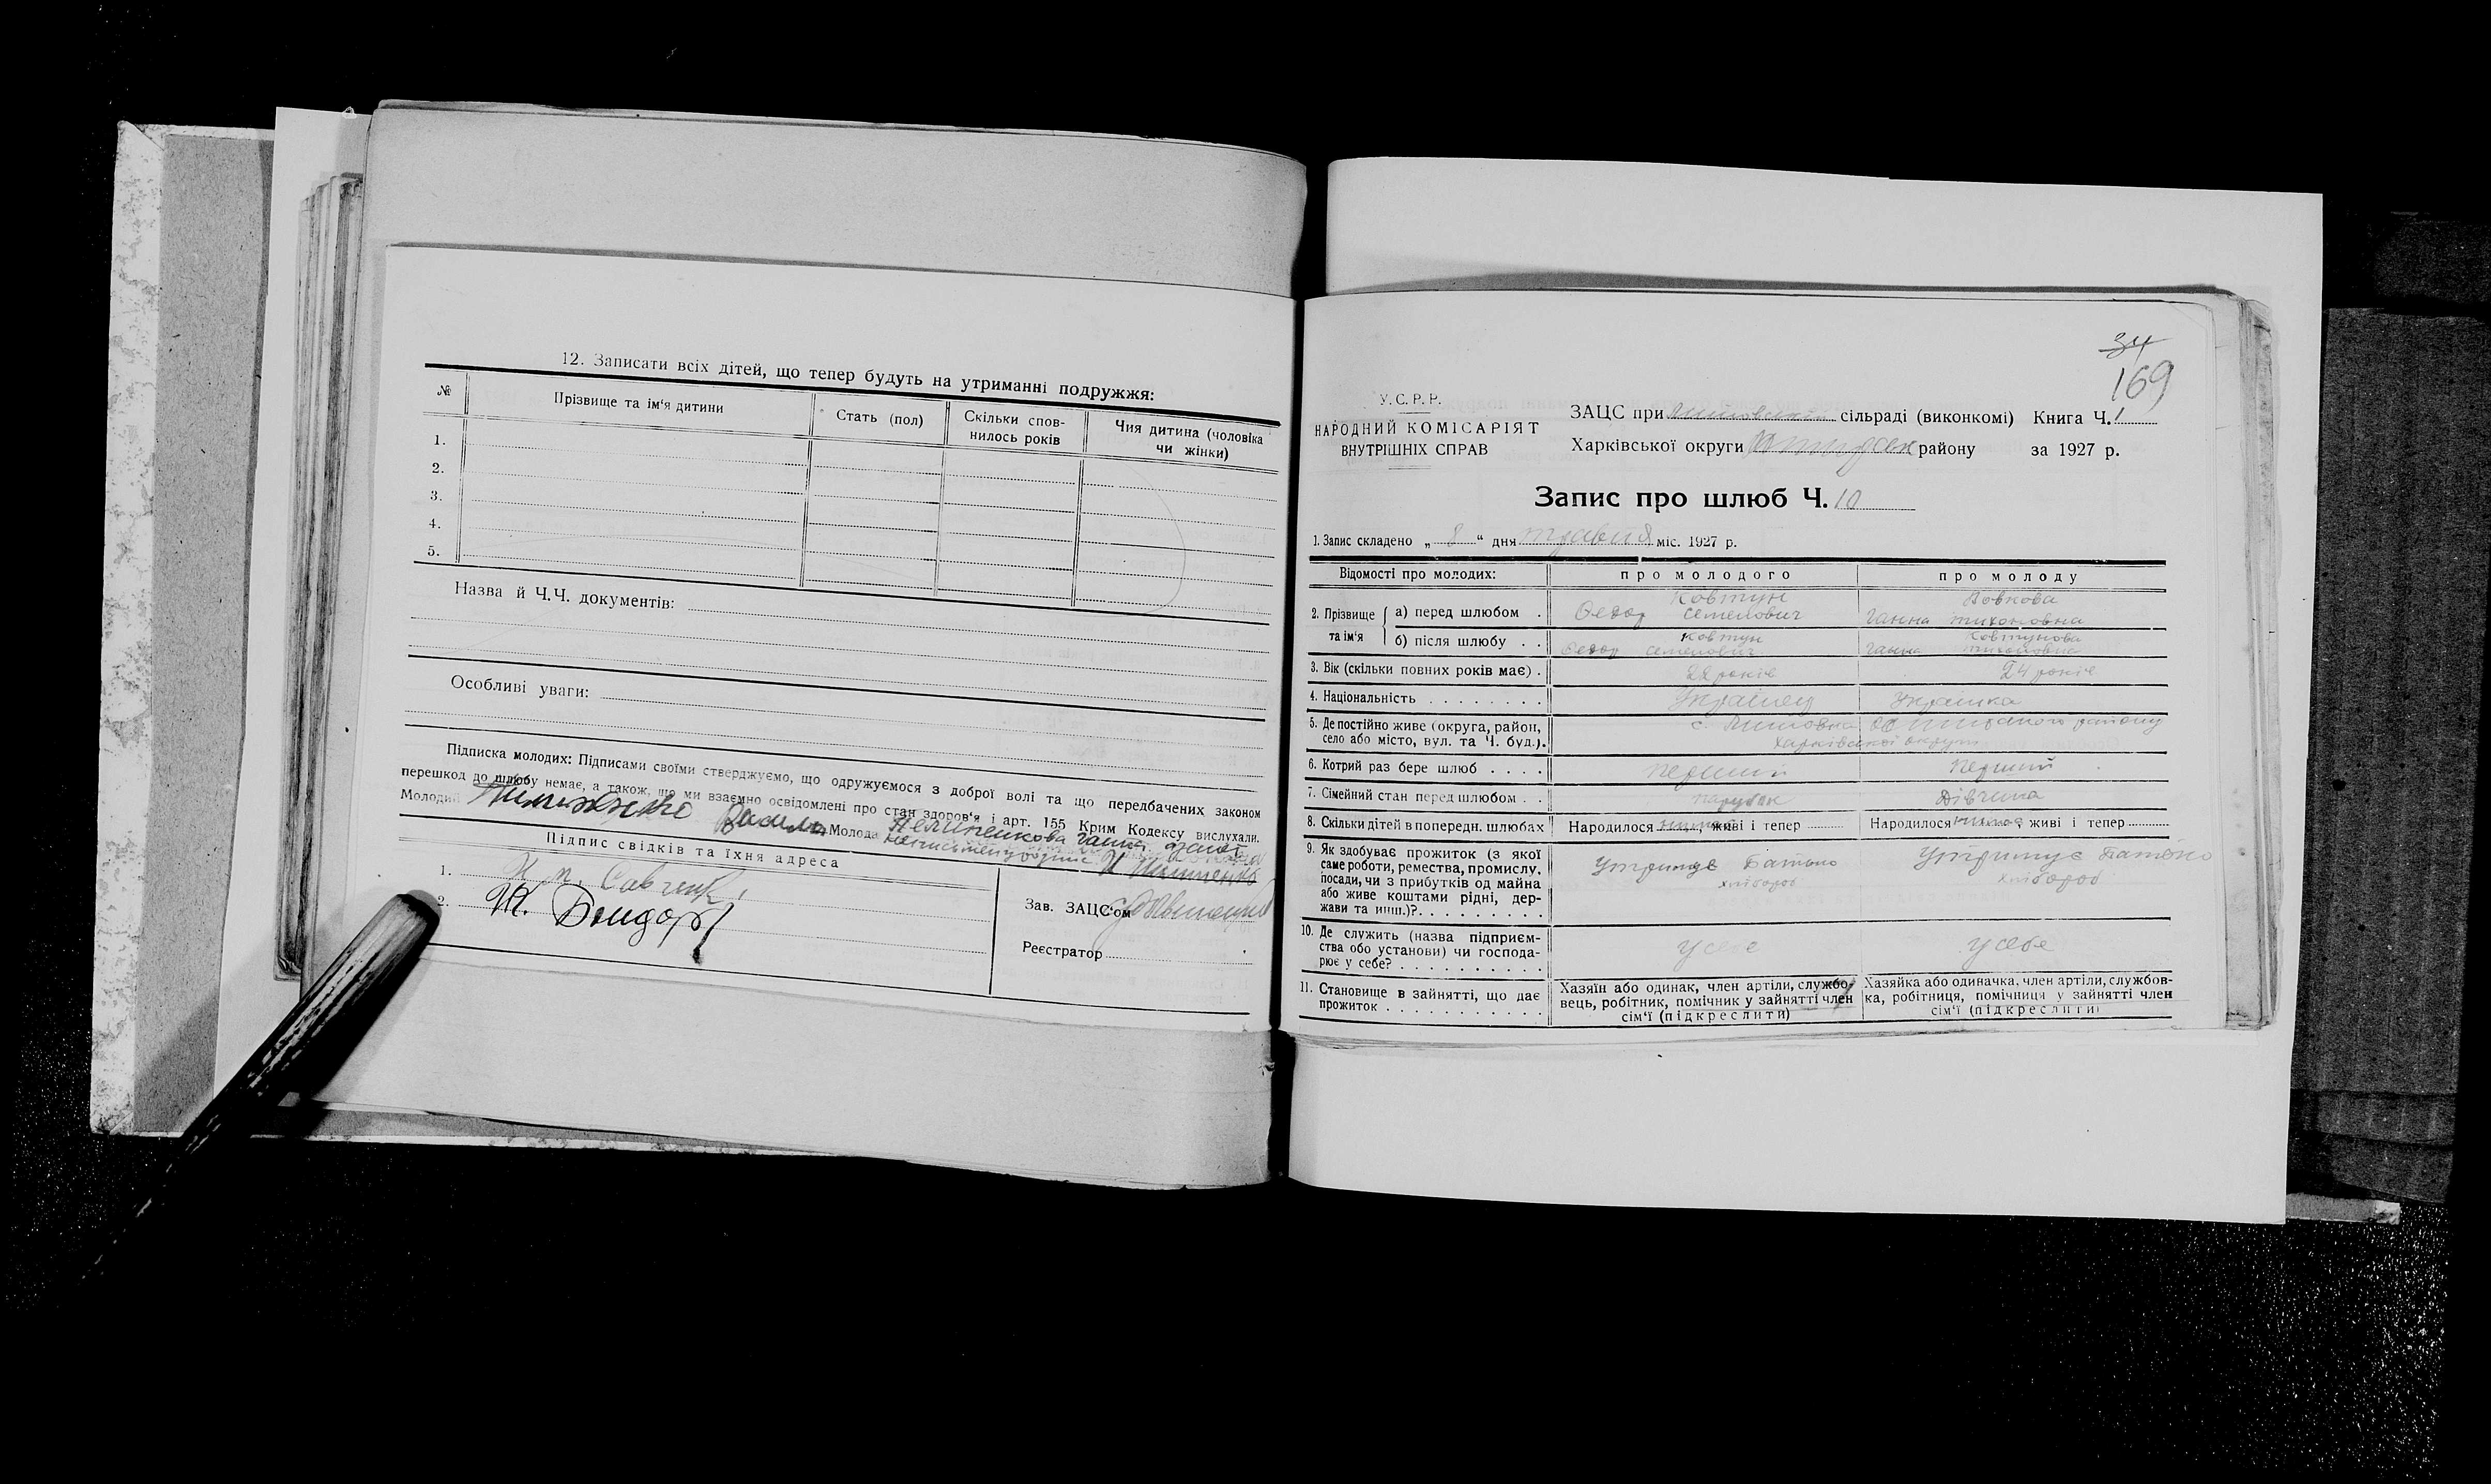 12. Записати всіх дітей, що тепер будуть на утриманні подружжя:
№ Прізвище та ім'я дитини Стать (пол) Скільки спов-нилось років Чия дитина (чоловіка чи жінки)
1.
2.
3.
4.
5.
Назва й Ч.Ч. документів:
Особливі уваги:
Підписка молодих: Підписами своїми стверджуємо, що одружуємося з доброї волі та що передбачених законом
перешкод до шлюбу немає, а також, що ми взаємно освідомлені про стан здоров'я і арт. 155 Крим Кодексу вислухали.
Молодий Василь Молода Ганна
Підпис свідків та їхня адреса
1. Савченко
2. Бондар
Зав. ЗАЦС'ом
Реєстратор
34
169
У.С.Р.Р.
НАРОДНИЙ КОМІСАРІЯТ
ВНУТРІШНІХ СПРАВ
ЗАЦС при сільраді (виконкомі) Книга Ч. 1
Харківської округи району за 1927 р.
Запис про шлюб Ч. 10
1. Запис складено „ 8 “ дня травня міс. 1927 р.
Відомості про молодих: про молодого про молоду
2. Прізвище та ім'я
а) перед шлюбом . Ковтун Федор Семенович Вовкова Ганна тихоновна
б) після шлюбу . . Ковтун Федор Семенович Ковтунова Ганна тихоновна
3. Вік (скільки повних років має) . 22 років 24 років
4. Національність . . . . . . . . Українец Українка
5. Де постійно живе (округа, район, с. району
село або місто, вул. та Ч. буд.). Харківської округи
6. Котрий раз бере шлюб . . . . Перший Перший
7. Сімейний стан перед шлюбом . . парубок Дівчина
8. Скільки дітей в попередн. шлюбах Народилося , живі і тепер Народилося , живі і тепер
9. Як здобуває прожиток (з якої
саме роботи, ремества, промислу,
посади, чи з прибутків од майна
або живе коштами рідні, дер-
жави та инш.)?. . . . . . . . .
Утримує Батько
хлібороб
Утримує Батько
хлібороб
10. Де служить (назва підприєм-
ства або установи) чи господа-
рює у себе? . . . . . . . . . .
у себе у себе
11. Становище в зайнятті, що дає
прожиток . . . . . . . . . . .
Хазяїн або одинак, член артілі, службо-
вець, робітник, помічник у зайнятті член
сім'ї (підкреслити)
Хазяйка або одиначка, член артілі, службов-
ка, робітниця, помічниця у зайнятті член
сім'ї (підкреслити)